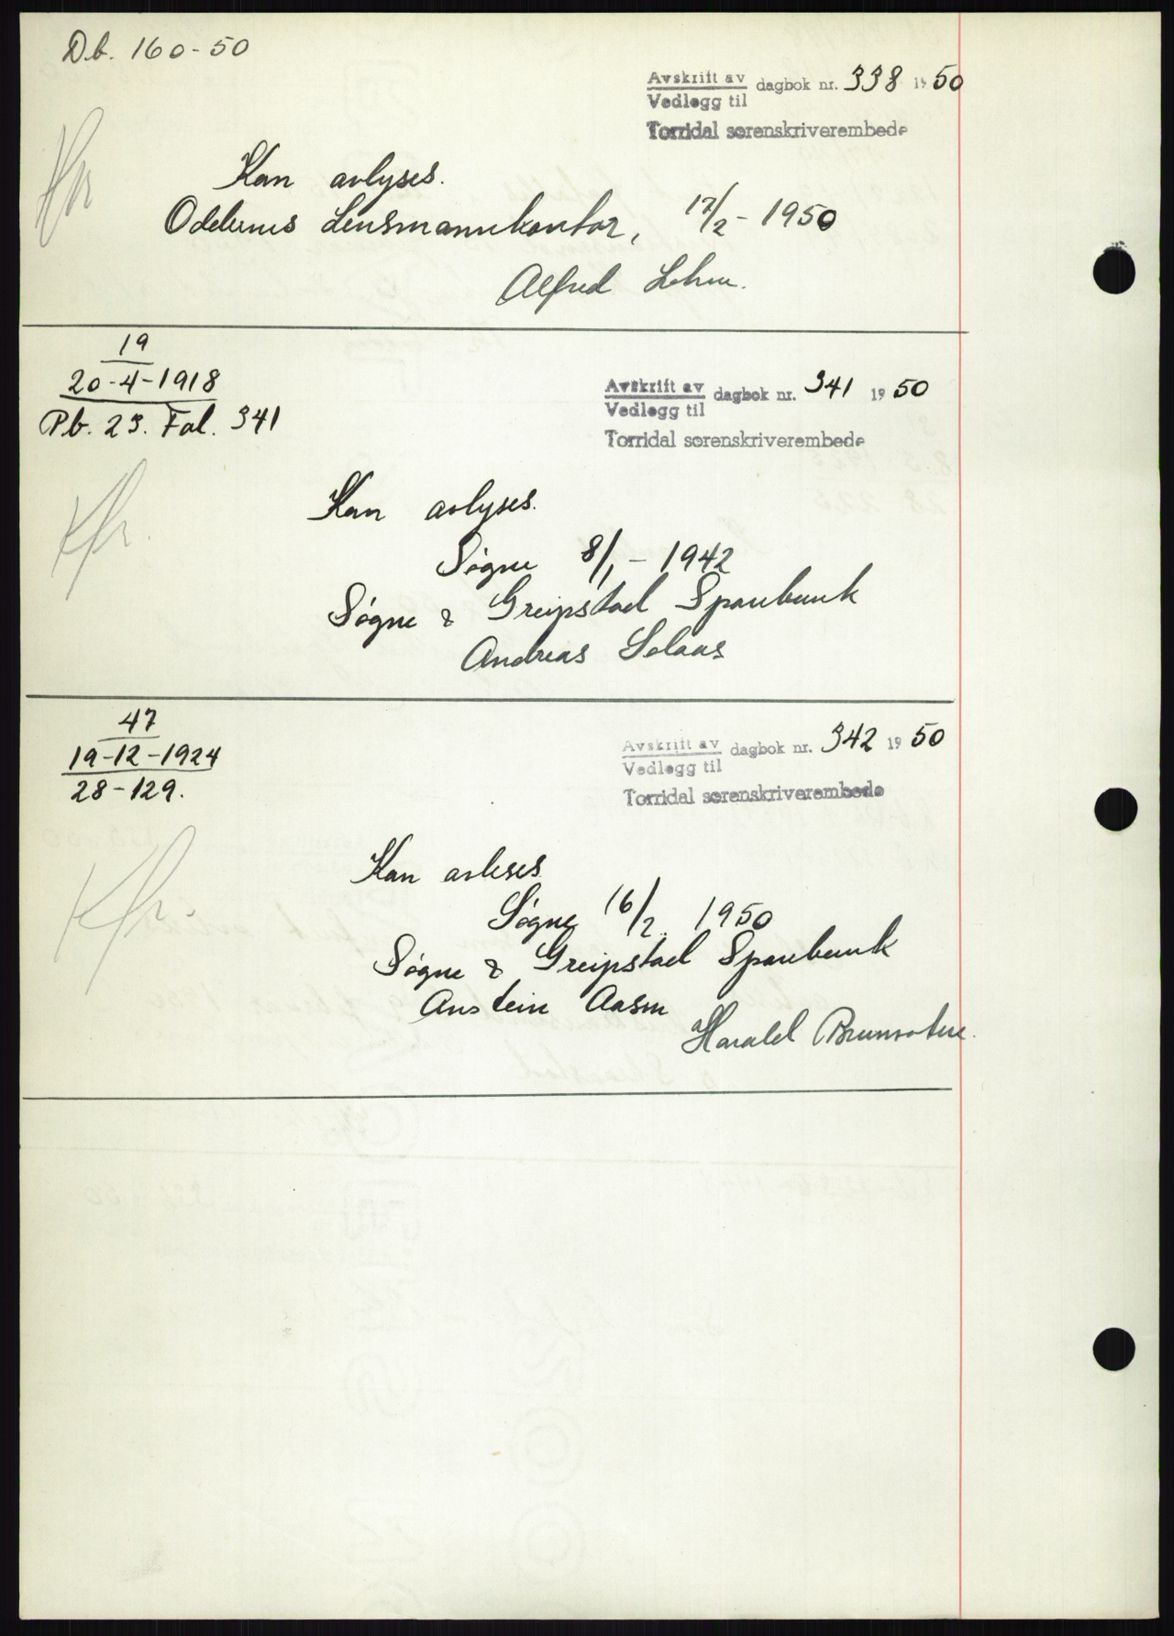 D.b. 160-50
Avskrift av
Vedlegg til
dagbok nr. 338 1950
Torridal sorenskriverembede
Kan avlyses.
Oddernes Lensmannkontor, 17/2 - 1950
Alfred Lohne.
19
20-4-1918
Pb. 23. Fol. 341
Avskrift av
Vedlegg til
dagbok nr. 341 1950
Torridal sorenskriverembede
Kfr.
Kan avlyses.
Søgne 8/1 - 1942
Søgne & Greipstad Sparebank
Andreas Solaas
47
19-12-1924
28-129.
Avskrift av
Vedlegg til
dagbok nr. 342 1950
Torridal sorenskriverembede
Kfr.
Kan avleses
Søgne 16/2 1950
Søgne & Greipstad Sparebank
Anstein Aasen
Harald Brunvatne.